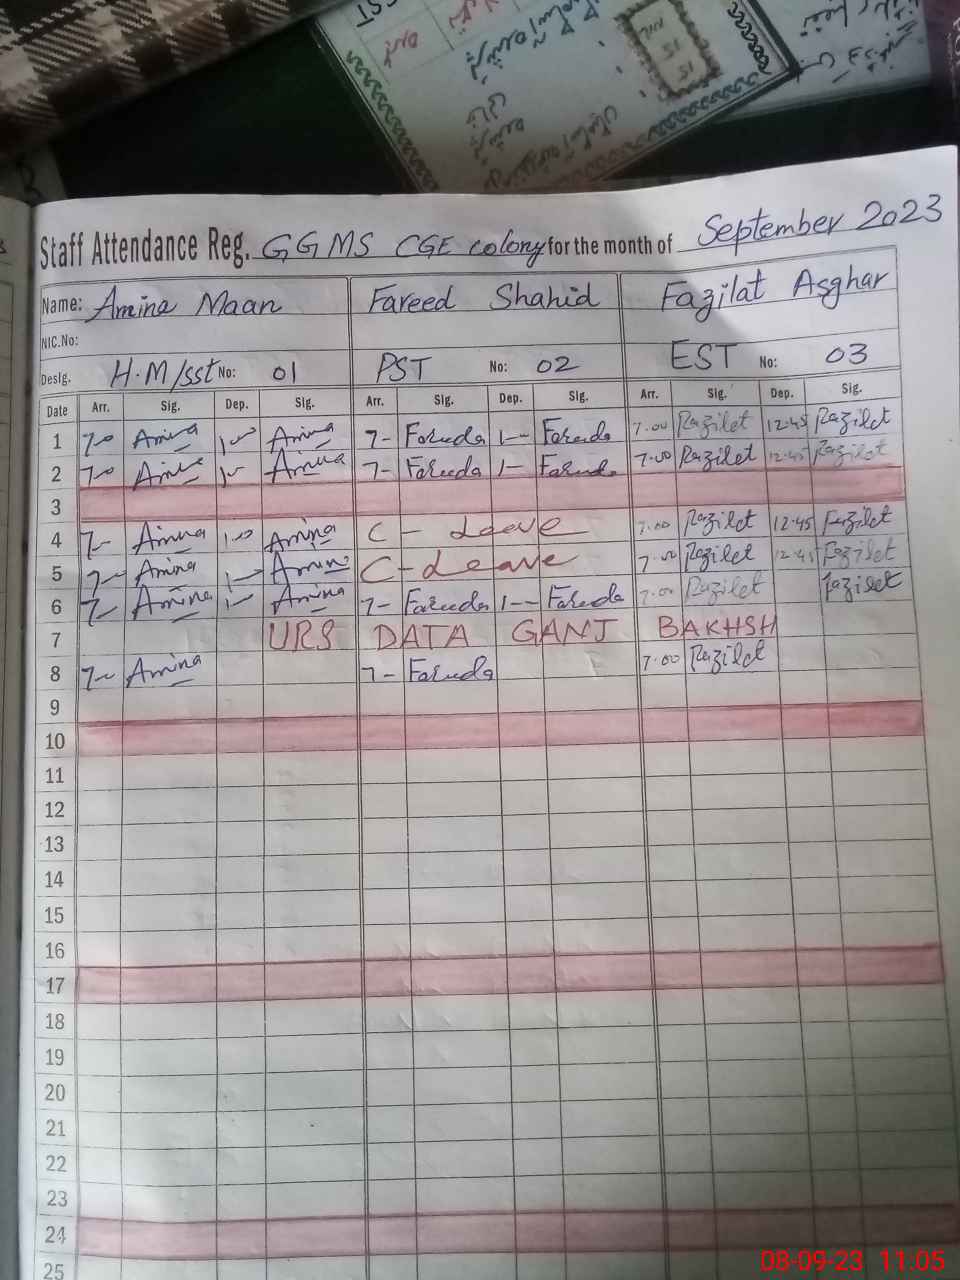 Staff Attendance Reg. GGMS CGE colony for the month of September 2023
Name: Amina Maan Fareed Shahid Fazilat Asghar
NIC.No:
Desig. H.M/SST No: 01 PST No: 02 EST No: 03
Date Arr. Sig. Dep. Sig. Arr. Sig. Dep. Sig. Arr. Sig. Dep. Sig.
1 7-00 Amina 1-00 Amina 7- Fareeda 1- Fareeda 7.00 Fazilet 12.45 Fazilet
2 7-00 Amina 1- Amina 7- Fareeda 1- Fareeda 7.00 Fazilet 12.45 Fazilet
3
4 7- Amina 1-00 Amina C - Leave 7.00 Fazilet 12.45 Fazilet
5 7- Amina 1- Amina C - Leave 7.00 Fazilet 12.45 Fazilet
6 7- Amina 1- Amina 7- Fareeda 1- Fareeda 7.00 Fazilet Fazilet
7 URS DATA GANJ BAKHSH
8 7- Amina 7- Fareeda 7.00 Fazilet
9
10
11
12
13
14
15
16
17
18
19
20
21
22
23
24
25
08-09-23 11:05